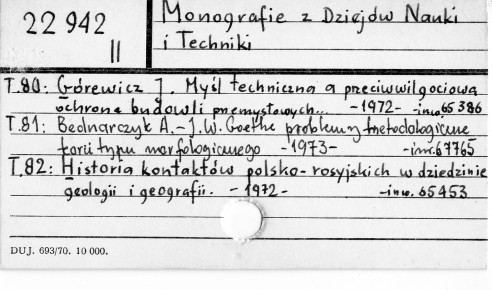 22 942
II
Monografie z Dziejów Nauki
i Techniki
T.80: Górewicz J. Myśl techniczna a przeciwwilgociowa
ochrona budowli przemysłowych... -1972- -inw. 65386
T.81: Bednarczyk A. - J.W. Goethe problemy metodologiczne
teorii typu morfologicznego -1973- -inw. 67765
T.82: Historia kontaktów polsko-rosyjskich w dziedzinie
geologii i geografii. -1972- -inw. 65453
DUJ. 693/70. 10 000.